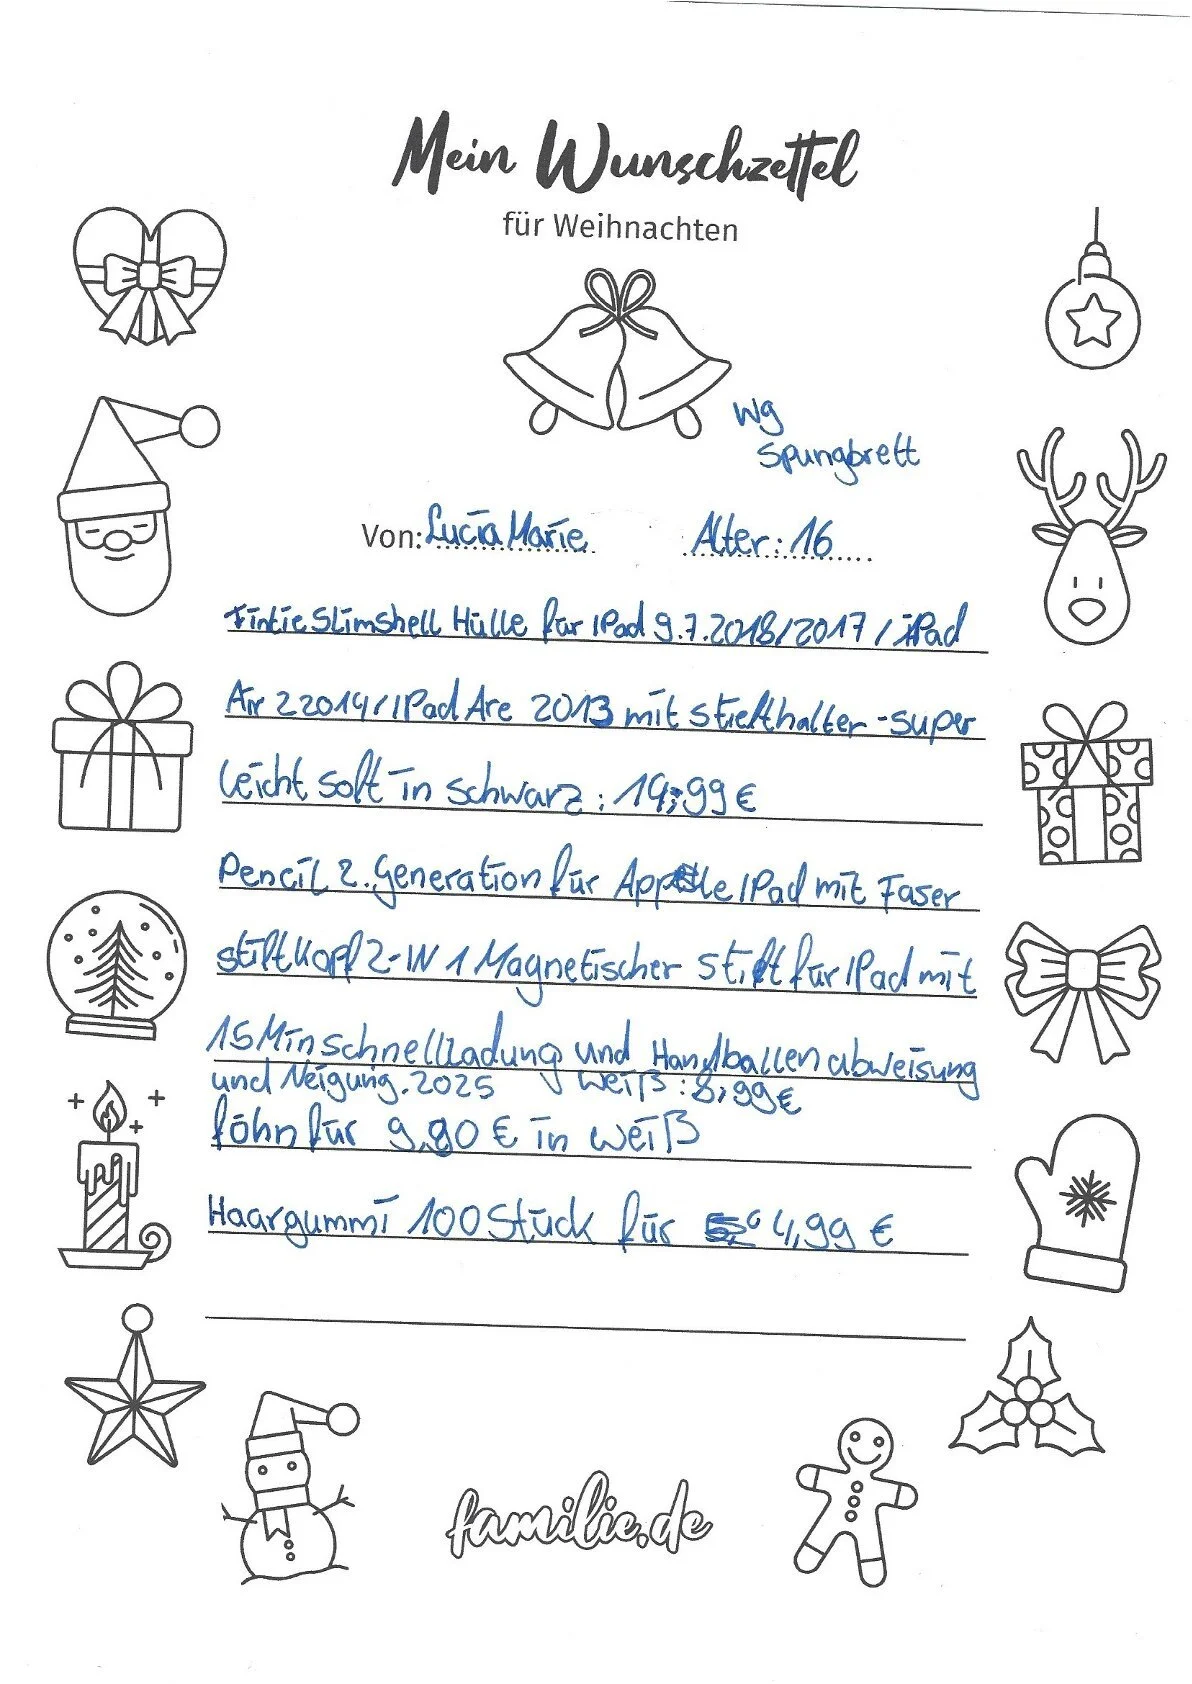 Mein Wunschzettel
für Weihnachten
Wg
Spungbrett
Von: Lucia Marie Alter: 16
Fintie Slimshell Hülle für IPad 9.7.2018/2017 / iPad
Air 2 2014/IPad Are 2013 mit Stiefthalter - super
leicht soft in schwarz: 19,99 €
Pencil 2. Generation für Apple IPad mit Faser
stiftkopf 2-IN 1 Magnetischer Stift für IPad mit
15 Min schnellladung und Handballenabweisung
und Neigung. 2025 weiß: 8,99 €
föhn für 9,90 € in weiß
Haargummi 100 Stück für 4,99 €
familie.de